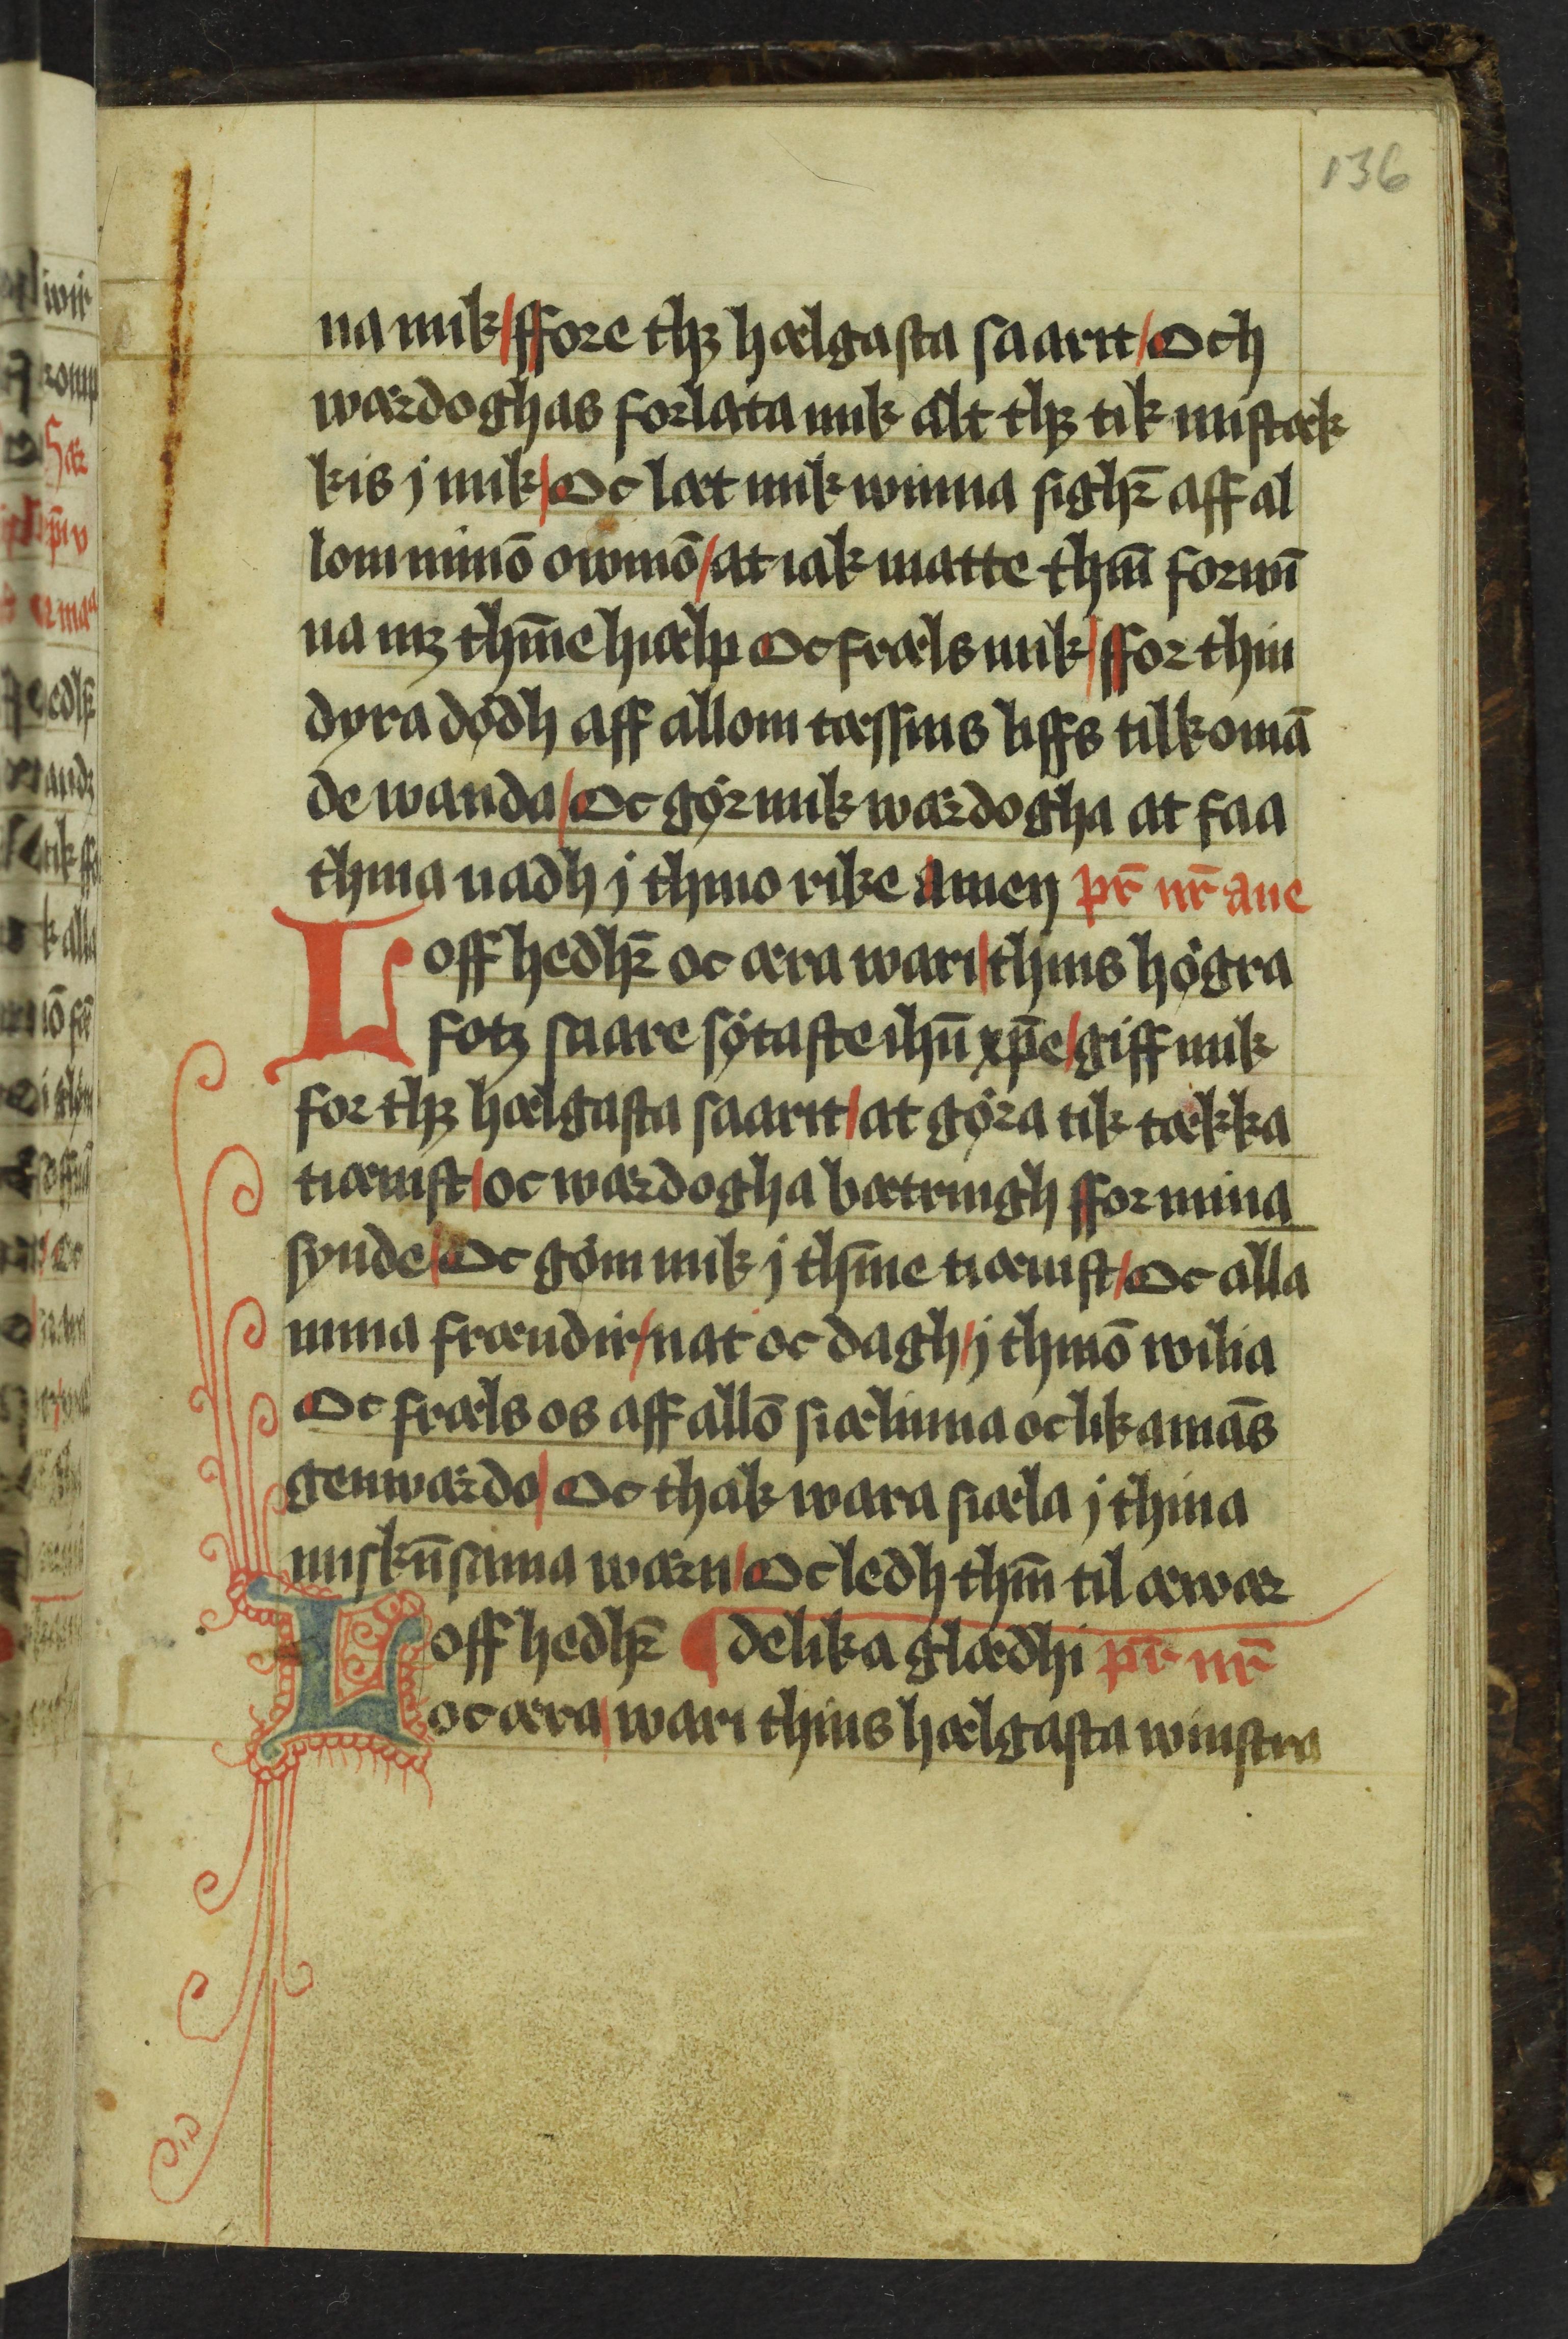 136
na mik/ ffore thꝫ hælgasta saarit/ Och
wærdoghas forlata mik alt thꝫ tik mistæk
kis j mik/ Oc læt mik winna sighr̄ aff al
lom minō owinō/ at iak matte thm̄ forwī
na mꝫ thīne hiælp Oc fræls mik/ ffor thin
dyra dödh aff allom tæssins liffs tilkomā
de wanda/ Oc gör mik wærdogha at faa
thina nadh j thino rike Amen pr̄ nr̄ aue
Loff hedhr̄ oc æra wari/ thins högra
fotz saare sötaste ihū xp̄e/ giff mik
for thꝫ hælgasta saarit/ at göra tik tækka
tiænist/ oc wærdogha bætringh ffor mina
synde/ Oc göm mik j thīne tiænist/ Oc alla
mina frændir/ nat oc dagh/ j thinō wilia
Oc fræls os aff allō siælinna oc likamās
genwærdo/ Oc thak wara siæla j thina
miskūsama wærn/ Oc ledh thm̄ til æwær
Loff hedhr̄ ¶ delika glædhi pr̄ nr̄
oc æra/ wari thins hælgasta winstra